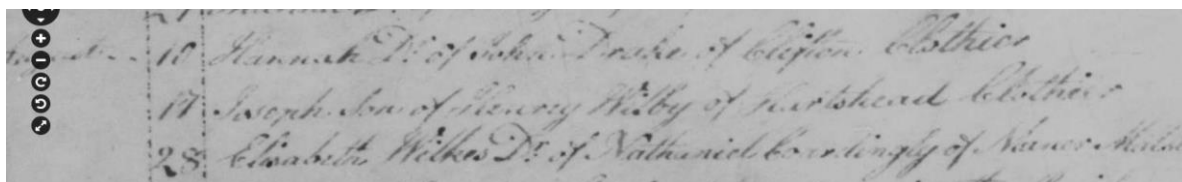 10 Hannah Dr. of John Drake of Clifton Clothier
17 Joseph Son of Henry Wilby of Hartshead Clothier
28 Elisabeth Wilkes Dr. of Nathaniel Coardingly of